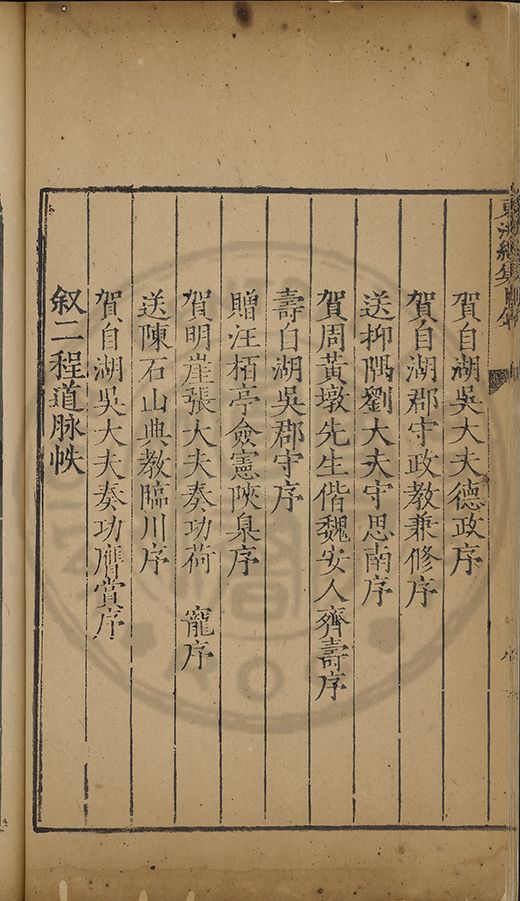 賀自湖吳大夫德政序
賀自湖郡守政教兼修序
送抑隅劉大夫守思南序
賀周黃墩先生偕魏安人齊壽序
壽自湖吳郡守序
贈汪栢亭僉憲陝臬序
賀明崖張大夫奏功荷　寵序
送陳石山典教臨川序
賀自湖吳大夫奏功膺賞序
叙二程道脉帙